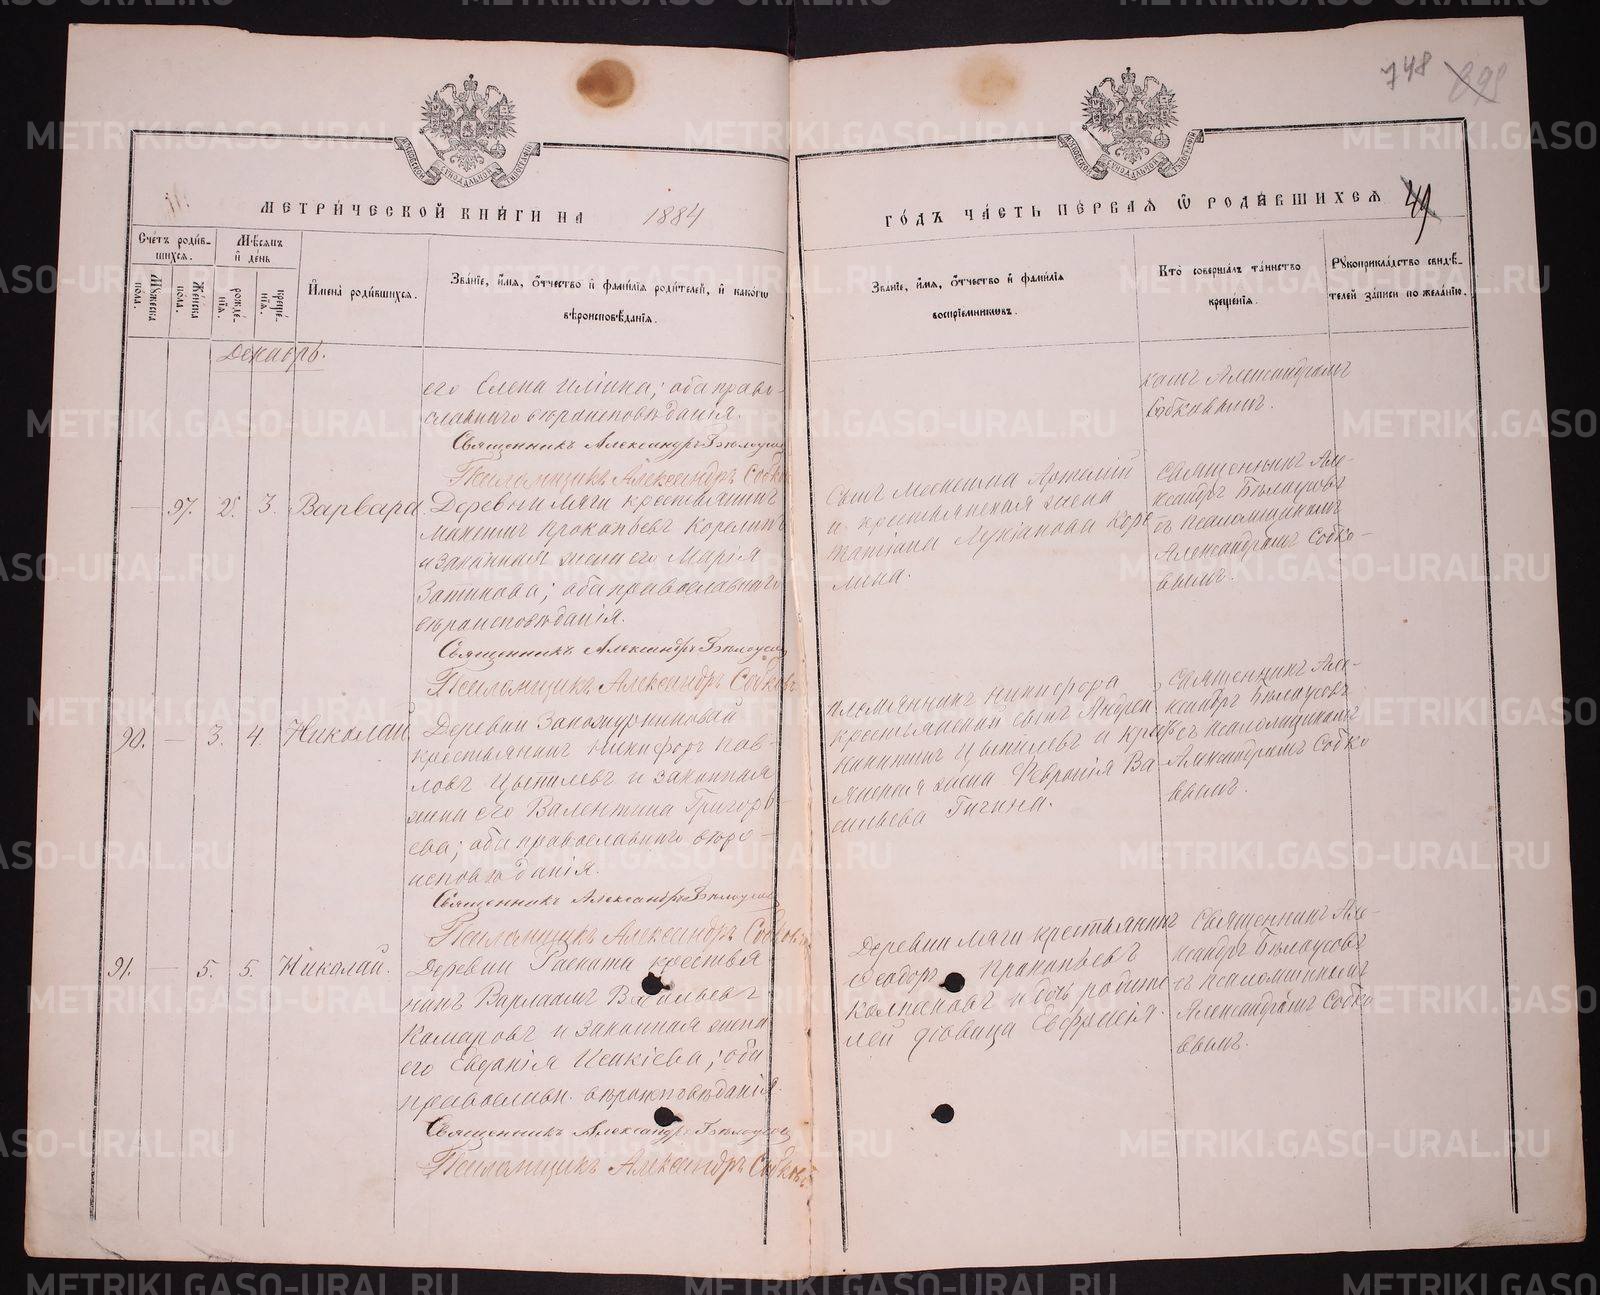 748 898
МЕТРИ́ЧЕСКОЙ КНИ́ГИ НА 1884
ГО́ДЪ ЧА́СТЬ ПЕ́РВАѦ Ѿ РОДИ́ВШИХСѦ 49
Сче́тъ роди́в-
шихсѧ.
Мꙋжеска пола.
Же́нска пола.
Мѣ́сѧцъ
и҆ де́нь
рожде́нїѧ.
креще́нїѧ.
И҆мена̀ роди́вшихсѧ.
Зва́нїе, и҆́мѧ, ѻ҆́тчество и҆ фами́лїѧ роди́телей, и҆ како́гѡ
вѣроисповѣ́данїѧ.
Зва́нїе, и҆́мѧ, ѻ҆́тчество и҆ фами́лїѧ
воспрїе́мникѡвъ.
Кто̀ соверша́лъ та́инство
креще́нїѧ.
Рꙋкоприкла́дство свидѣ́-
телей за́писи по жела́нїю.
Декабрь.
его Елена Ильина; оба право-
славнаго вѣроисповѣданія.
Священникъ Александръ Бѣлоусов
Псаломщикъ Александръ Собков
комъ Александромъ
Собковымъ.
97. 2. 3. Варвара
Деревни Мяги крестьянинъ
Прокопьевъ Корелинъ
и законная жена его Марія
оба православнаго
вѣроисповѣданія.
Священникъ Александръ Бѣлоусов
Псаломщикъ Александръ Собковъ
Артемій
и крестьянская жена
Татіана Лукіанова Коре
лина.
Священникъ Але-
ксандръ Бѣлоусовъ
съ псаломщикомъ
Александромъ Собко-
вымъ.
90. — 3. 4. Николай
Деревни
крестьянинъ Никифоръ Пав-
ловъ Цыпилевъ и законная
жена его Валентина Григорь-
ева; оба православнаго вѣро-
исповѣданія.
Священникъ Александръ Бѣлоусов
Псаломщикъ Александръ Собковъ
племянникъ Никифора
крестьянской сынъ Андрей
Никитинъ Цыпилевъ и кресть
янская жена Февронія Ва-
сильева Гигина.
Священникъ Але-
ксандръ Бѣлоусовъ
съ псаломщикомъ
Александромъ Собко
вымъ.
91. — 5. 5. Николай.
Деревни крестья
нинъ Варлаамъ Васильевъ
Комаровъ и законная жена
его Евдокія Исакіева; оба
православн. вѣроисповѣданія.
Священникъ Александръ Бѣлоусов
Псаломщикъ Александръ Собковъ
Деревни Мяги крестьянинъ
Феодоръ Прокопьевъ
и дочь родите
лей дѣвица Евфросинія.
Священникъ Але-
ксандръ Бѣлоусовъ
съ псаломщикомъ
Александромъ Собко
вымъ.
METRIKI.GASO-URAL.RU